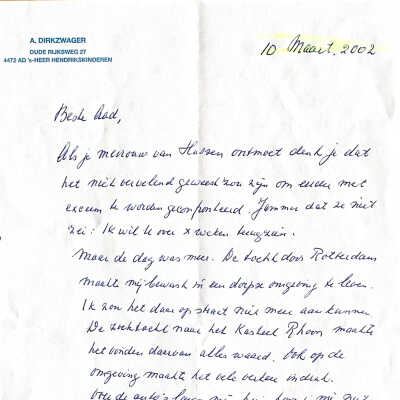 A. DIRKZWAGER
OUDE RIJKSWEG 27
4472 AD 's-HEER HENDRIKSKINDEREN
10 Maart, 2002
Beste Aad,
Als je mevrouw van Hassen ontmoet denk je dat
het niet vervelend geweest zou zijn om eerder met
te worden geconfronteerd. Jammer dat ze niet
zei: Ik wil te over x weken terugzien.
Maar de dag was meer. De tocht door Rotterdam
maakte mij bewust in een dorpse omgeving te leven.
Ik zou het daar op straat niet meer aan kunnen.
De zichtocht naar het Kasteel Rhoon maakte
het vinden daarvan alles waard. Ook op de
omgeving maakte het vele verkeer indruk.